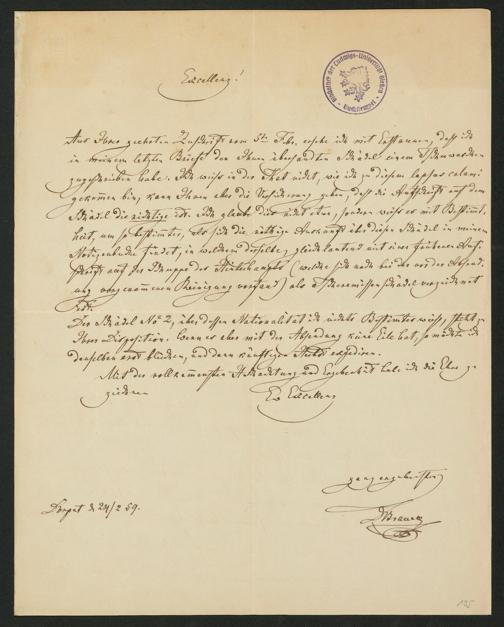 Excellenz!
Bibliothek der Ludwigs-Universität Giessen
Aus Ihrer geehrten Zuschrift vom 5ten Febr. ersehe ich mit Erstaunen, daß ich
in meinem letzten Briefe den Ihnen übersandten Schädel einem
zugeschrieben habe. Ich weiß in der That nicht, wie ich zu diesem lapsus calami
gekommen bin, kann Ihnen aber die Versicherung geben, daß die Aufschrift auf dem
Schädel die richtige ist. Ich glaube dies nicht etwa, sondern weiß es mit Bestimmt-
heit, um so bestimmter, als sich die nöthige Auskunft über diesen Schädel in meinem
Notizenbuche findet, in welchem derselbe, gleichlautend mit einer früheren Auf-
schrift auf der Schuppe des Hinterhaupts (welche sich noch bei der vor der Absend-
ung vorgenommenen Reinigung vorfand) als verzeichnet
ist.
Der Schädel No 2, über dessen Nationalität ich nichts Bestimmtes weiß, steht zu
Ihrer Disposition. Wenn es aber mit der Absendung keine Eile hat, so möchte ich
denselben erst bleichen, und dann expediren.
Mit der vollkommensten Hochachtung und Ergebenheit habe ich die Ehre zu
zeichnen
Ew Excellenz
ganz ergebenster
Dorpat d 24/2 59.
195